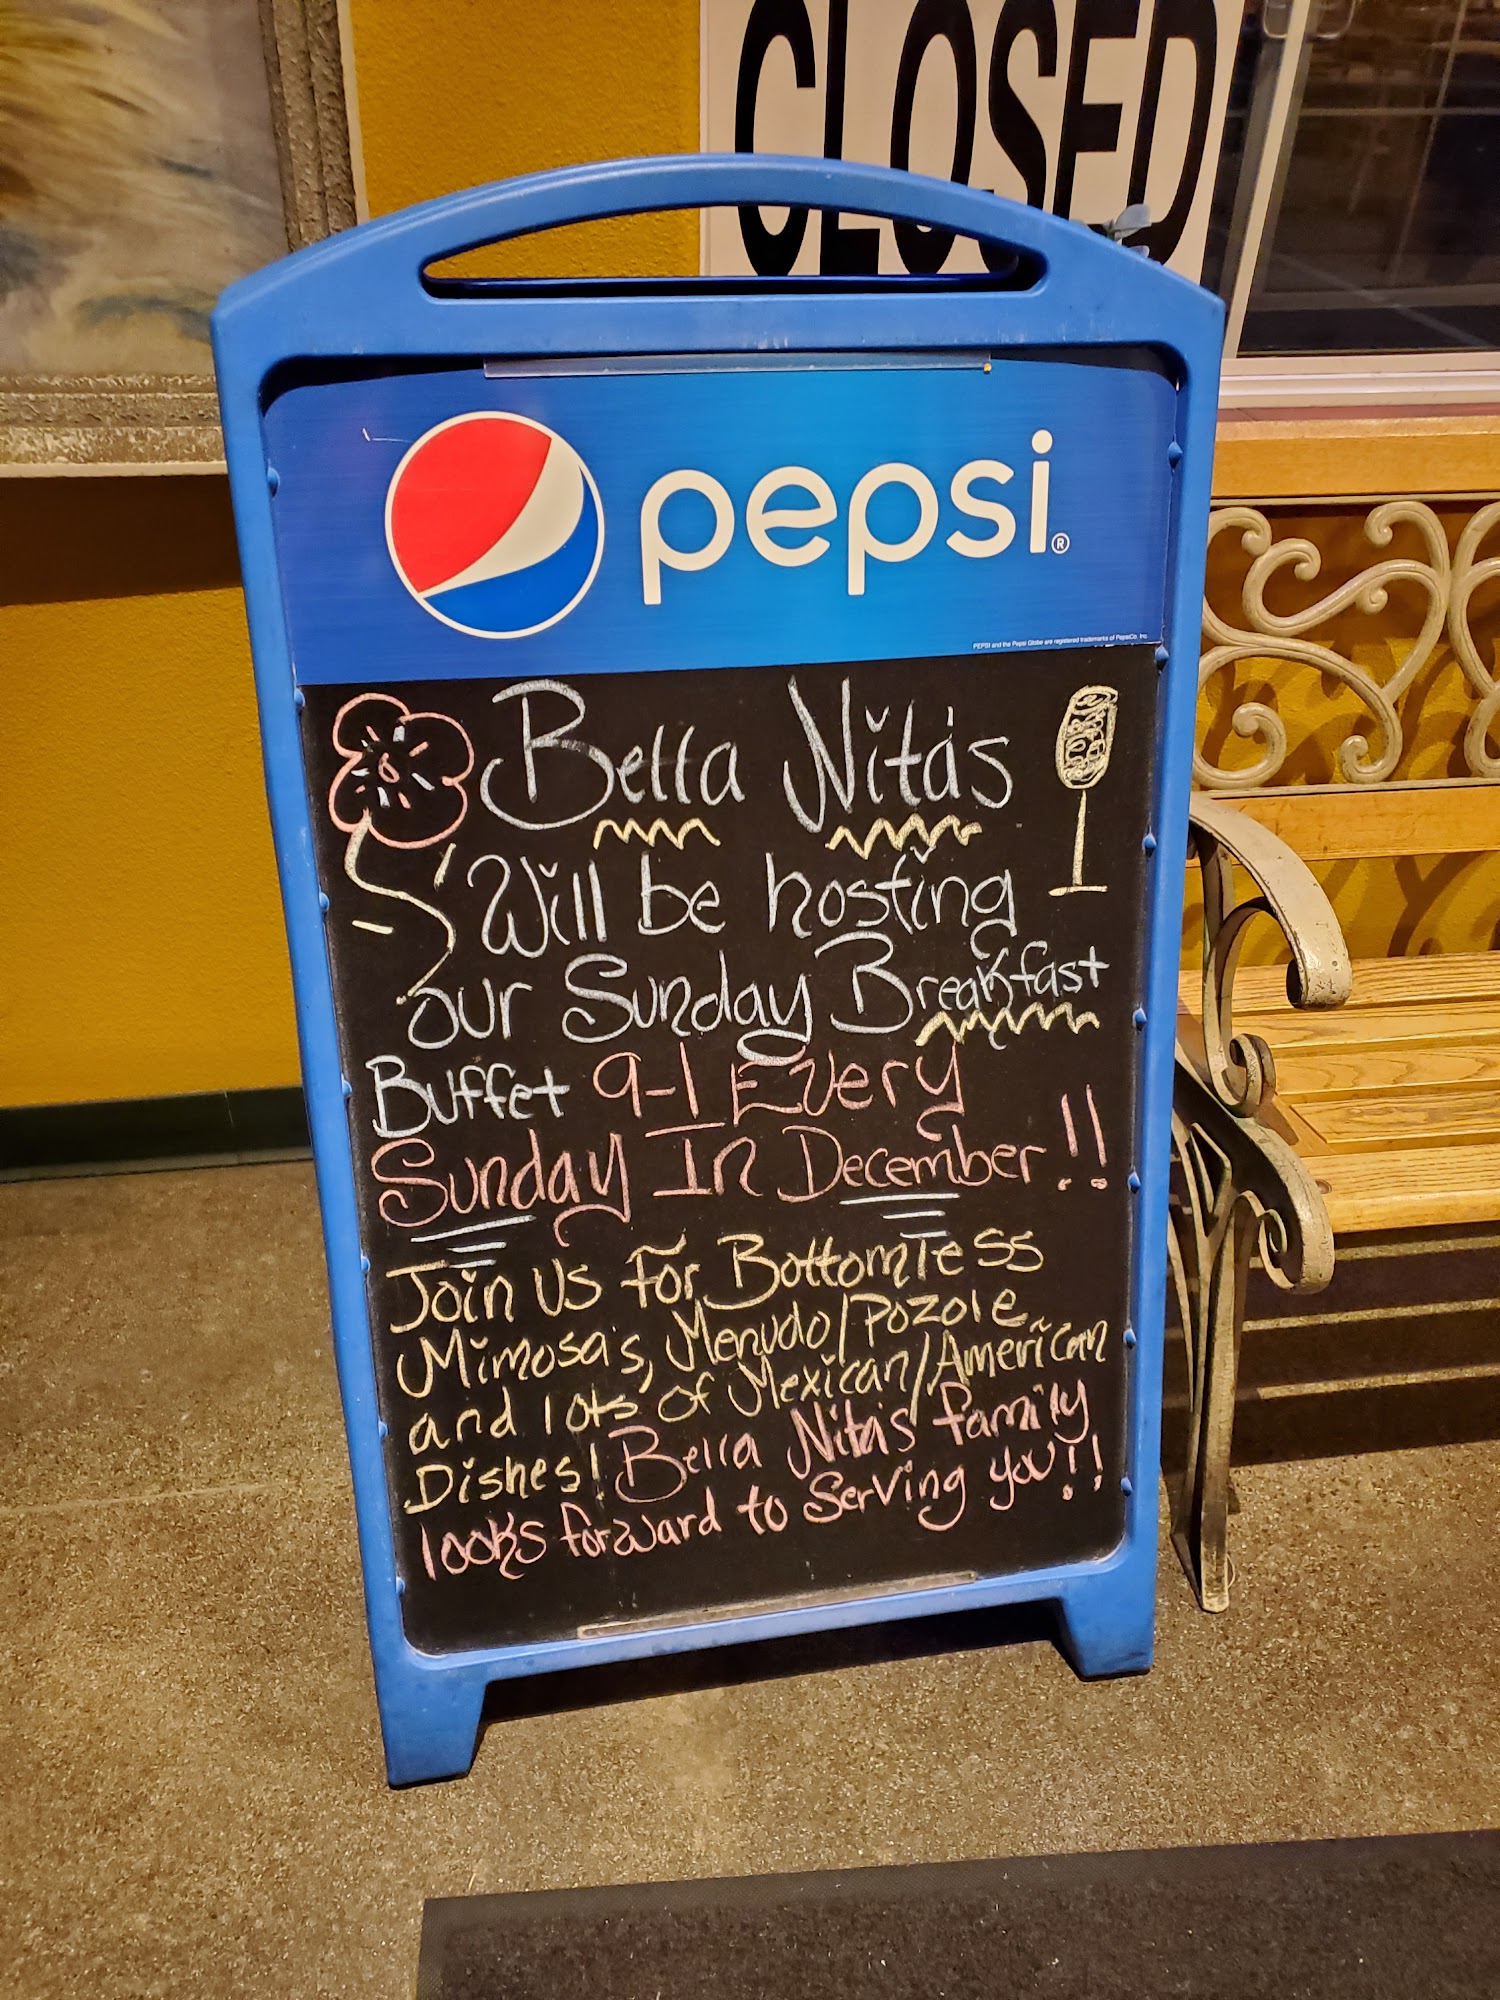 CLOSED
pepsi®
PEPSI and the Pepsi Globe are registered trademarks of PepsiCo, Inc.
Bella Nita's
Will be hosting
our Sunday Breakfast
Buffet 9-1 Every
Sunday In December!!
Join us for Bottomless
Mimosa's, Menudo/Pozole
and lots of Mexican/American
Dishes! Bella Nita's family
looks forward to serving you!!